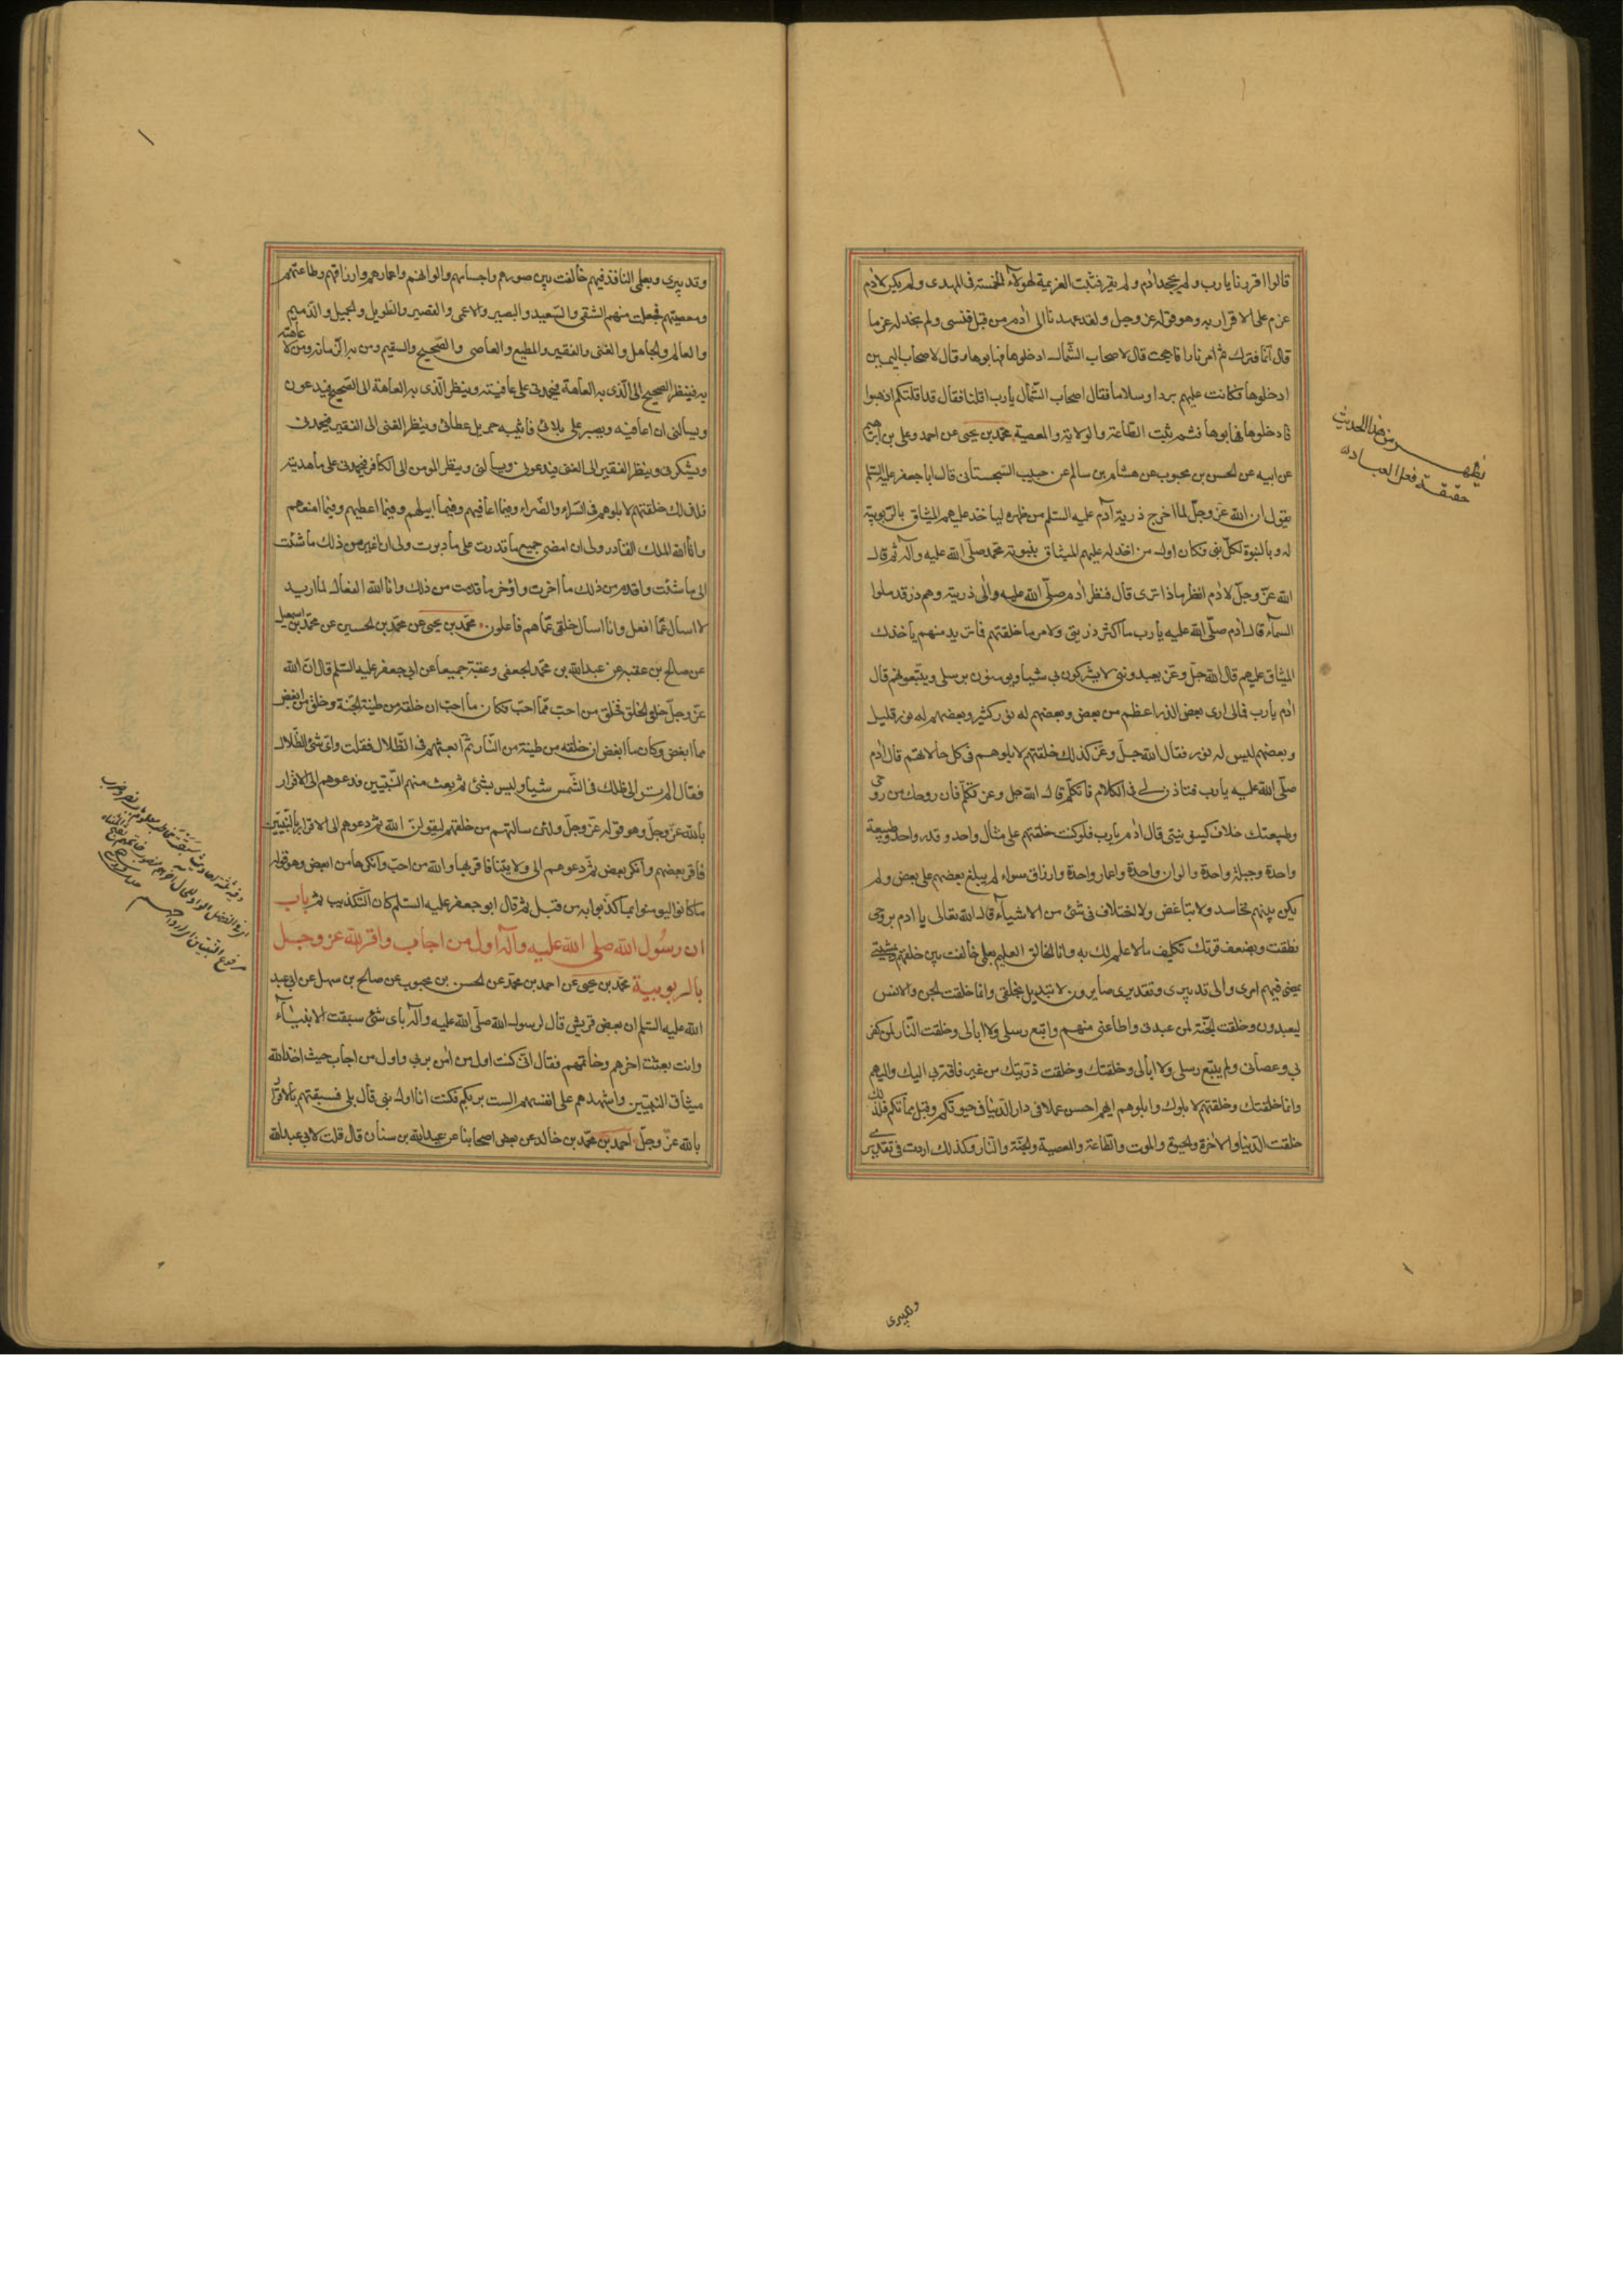 قالوا اقررنا يا رب ولم يجحد ادم ولم يقر فثبت العزيمة لهولاء الخمسة في المهدى ولم يكن لادم
عزم على الاقرار به وهو قوله عز وجل ولقد عهدنا الى ادم من قبل فنسى ولم نجد له عزما
قال انما فترك ثم امر نارا فاججت قال لاصحاب الشمال ادخلوها فهابوها وقال لاصحاب اليمين
ادخلوها فكانت عليهم بردا وسلاما فقال اصحاب الشمال يا رب اقلنا فقال قد اقلتكم اذهبوا
فادخلوها فهابوها فثم ثبت الطاعة والولاية والمعصية محمد بن يحيى عن احمد وعلي بن ابراهيم
عن ابيه عن الحسن بن محبوب عن هشام بن سالم عن حبيب السجستاني قال ابا جعفر عليه السلم
يقول ان الله عز وجل لما اخرج ذرية آدم عليه السلم من ظهره لياخذ عليهم الميثاق بالربوبية
له وبالنبوة لكل نبي فكان اول من اخذ له عليهم الميثاق بنبوته محمد صلى الله عليه وآله ثم قال
الله عز وجل لادم انظر ماذا ترى قال فنظر ادم صلى الله عليه والى ذريته وهم ذر قد ملوا
السماء قال ادم صلى الله عليه يا رب ما اكثر ذريتي ولامر ما خلقتهم فما تريد منهم باخذك
الميثاق عليهم قال الله جل وعز يعبدونني لا يشركون بي شيئا ويومنون برسلي ويتبعونهم قال
ادم يا رب فمالي ارى بعض الذر اعظم من بعض وبعضهم له نور كثير وبعضهم له نور قليل
وبعضهم ليس له نور فقال الله جل وعز كذلك خلقتهم لابلوهم في كل حالاتهم قال ادم
صلى الله عليه يا رب فتاذن لي في الكلام فاتكلم قال الله جل وعز تكلم فان روحك من روحي
وطبيعتك خلاف كينونيتي قال ادم يا رب فلو كنت خلقتهم على مثال واحد وقدر واحد وطبيعة
واحدة وجبلة واحدة والوان واحدة واعمار واحدة وارزاق سواء لم يبلغ بعضهم على بعض ولم
يكن بينهم تحاسد ولا تباغض ولا اختلاف في شئ من الاشياء قال الله تعالى يا ادم بروحي
نطقت وبضعف قوتك تكليف ما لا علم لك به وانا الخالق العليم بعلمي خالفت بين خلقهم بمشيتي
يمضى فيهم امرى والى تدبيري وتقديري صايرون لا تبديل لخلقي وانما خلقت الجن والانس
ليعبدون وخلقت الجنة لمن عبدني واطاعني منهم واتبع رسلي ولا ابالي وخلقت النار لمن كفر
بي وعصاني ولم يتبع رسلي ولا ابالي وخلقتك وخلقت ذريتك من غير فاقة بي اليك واليهم
وانما خلقتك وخلقتهم لابلوك وابلوهم ايهم احسن عملا في دار الدنيا في حيوتكم وقبل مماتكم فلذلك
خلقت الدنيا والاخرة والحيوة والموت والطاعة والمعصية والجنة والنار وكذلك اردت في تقديري
يظهر من هذا الحديث
حقيقة فعل العباد
وتدبيري
وتدبيري وبعلمي النافذ فيهم خالفت بين صورهم واجسامهم والوانهم واعمارهم وارزاقهم وطاعتهم
ومعصيتهم فجعلت منهم الشقي والسعيد والبصير والاعمى والقصير والطويل والجميل والذميم
والعالم والجاهل والغني والفقير والمطيع والعاصي والصحيح والسقيم ومن به الزمانة ومن لا عاهة
به فينظر الصحيح الى الذي به العاهة فيحمدني على عافيته وينظر الذي به العاهة الى الصحيح فيدعون
ويسألني ان اعافيه ويصبر على بلائي فاثيبه جزيل عطائي وينظر الغني الى الفقير فيحمدني
ويشكرني وينظر الفقير الى الغني فيدعوني ويسألني وينظر المومن الى الكافر فيحمدني على ما هديته
فلذلك خلقتهم لابلوهم في السراء والضراء وفيما اعافيهم وفيما ابتليهم وفيما اعطيهم وفيما امنعهم
وانا الله الملك القادر ولي ان امضي جميع ما قدرت على ما دبرت ولي ان اغير من ذلك ما شئت
الى ما شئت واقدم من ذلك ما اخرت واؤخر ما قدمت من ذلك وانا الله الفعال لما اريد
لا اسأل عما افعل وانا اسأل خلقي عما هم فاعلون محمد بن يحيى عن محمد بن الحسين عن محمد بن اسمعيل
عن صالح بن عقبة عن عبد الله بن محمد الجعفي وعقبة جميعا عن ابي جعفر عليه السلم قال ان الله
عز وجل خلق الخلق فخلق من احب مما احب فكان ما احب ان خلقه من طينة الجنة وخلق من ابغض
مما ابغض وكان ما ابغض ان خلقه من طينة من النار ثم ابعثهم في الظلال فقلت واي شئ الظلال
فقال الم تر الى ظلك في الشمس شيئا وليس بشئ ثم بعث منهم النبيين فدعوهم الى الاقرار
بالله عز وجل وهو قوله عز وجل ولئن سالتهم من خلقهم ليقولن الله ثم دعوهم الى الاقرار بالنبيين
فاقر بعضهم وانكر بعض ثم دعوهم الى ولايتنا فاقر بها والله من احب وانكرها من ابغض وهو قوله
ما كانوا ليومنوا بما كذبوا به من قبل ثم قال ابو جعفر عليه السلم كان التكذيب ثم باب
ان رسول الله صلى الله عليه وآله اول من اجاب واقر لله عز وجل
بالربوبية محمد بن يحيى عن احمد بن محمد عن الحسن بن محبوب عن صالح بن سهل عن ابي عبد
الله عليه السلم ان بعض قريش قال لرسول الله صلى الله عليه وآله باي شئ سبقت الانبياء
وانت بعثت اخرهم وخاتمهم فقال اني كنت اول من امن بربي واول من اجاب حيث اخذ الله
ميثاق النبيين واشهدهم على انفسهم الست بربكم فكنت انا اول نبي قال بلى فسبقتهم بالاقرار
بالله عز وجل احمد بن محمد بن خالد عن بعض اصحابنا عن عبد الله بن سنان قال قلت لابي عبد الله